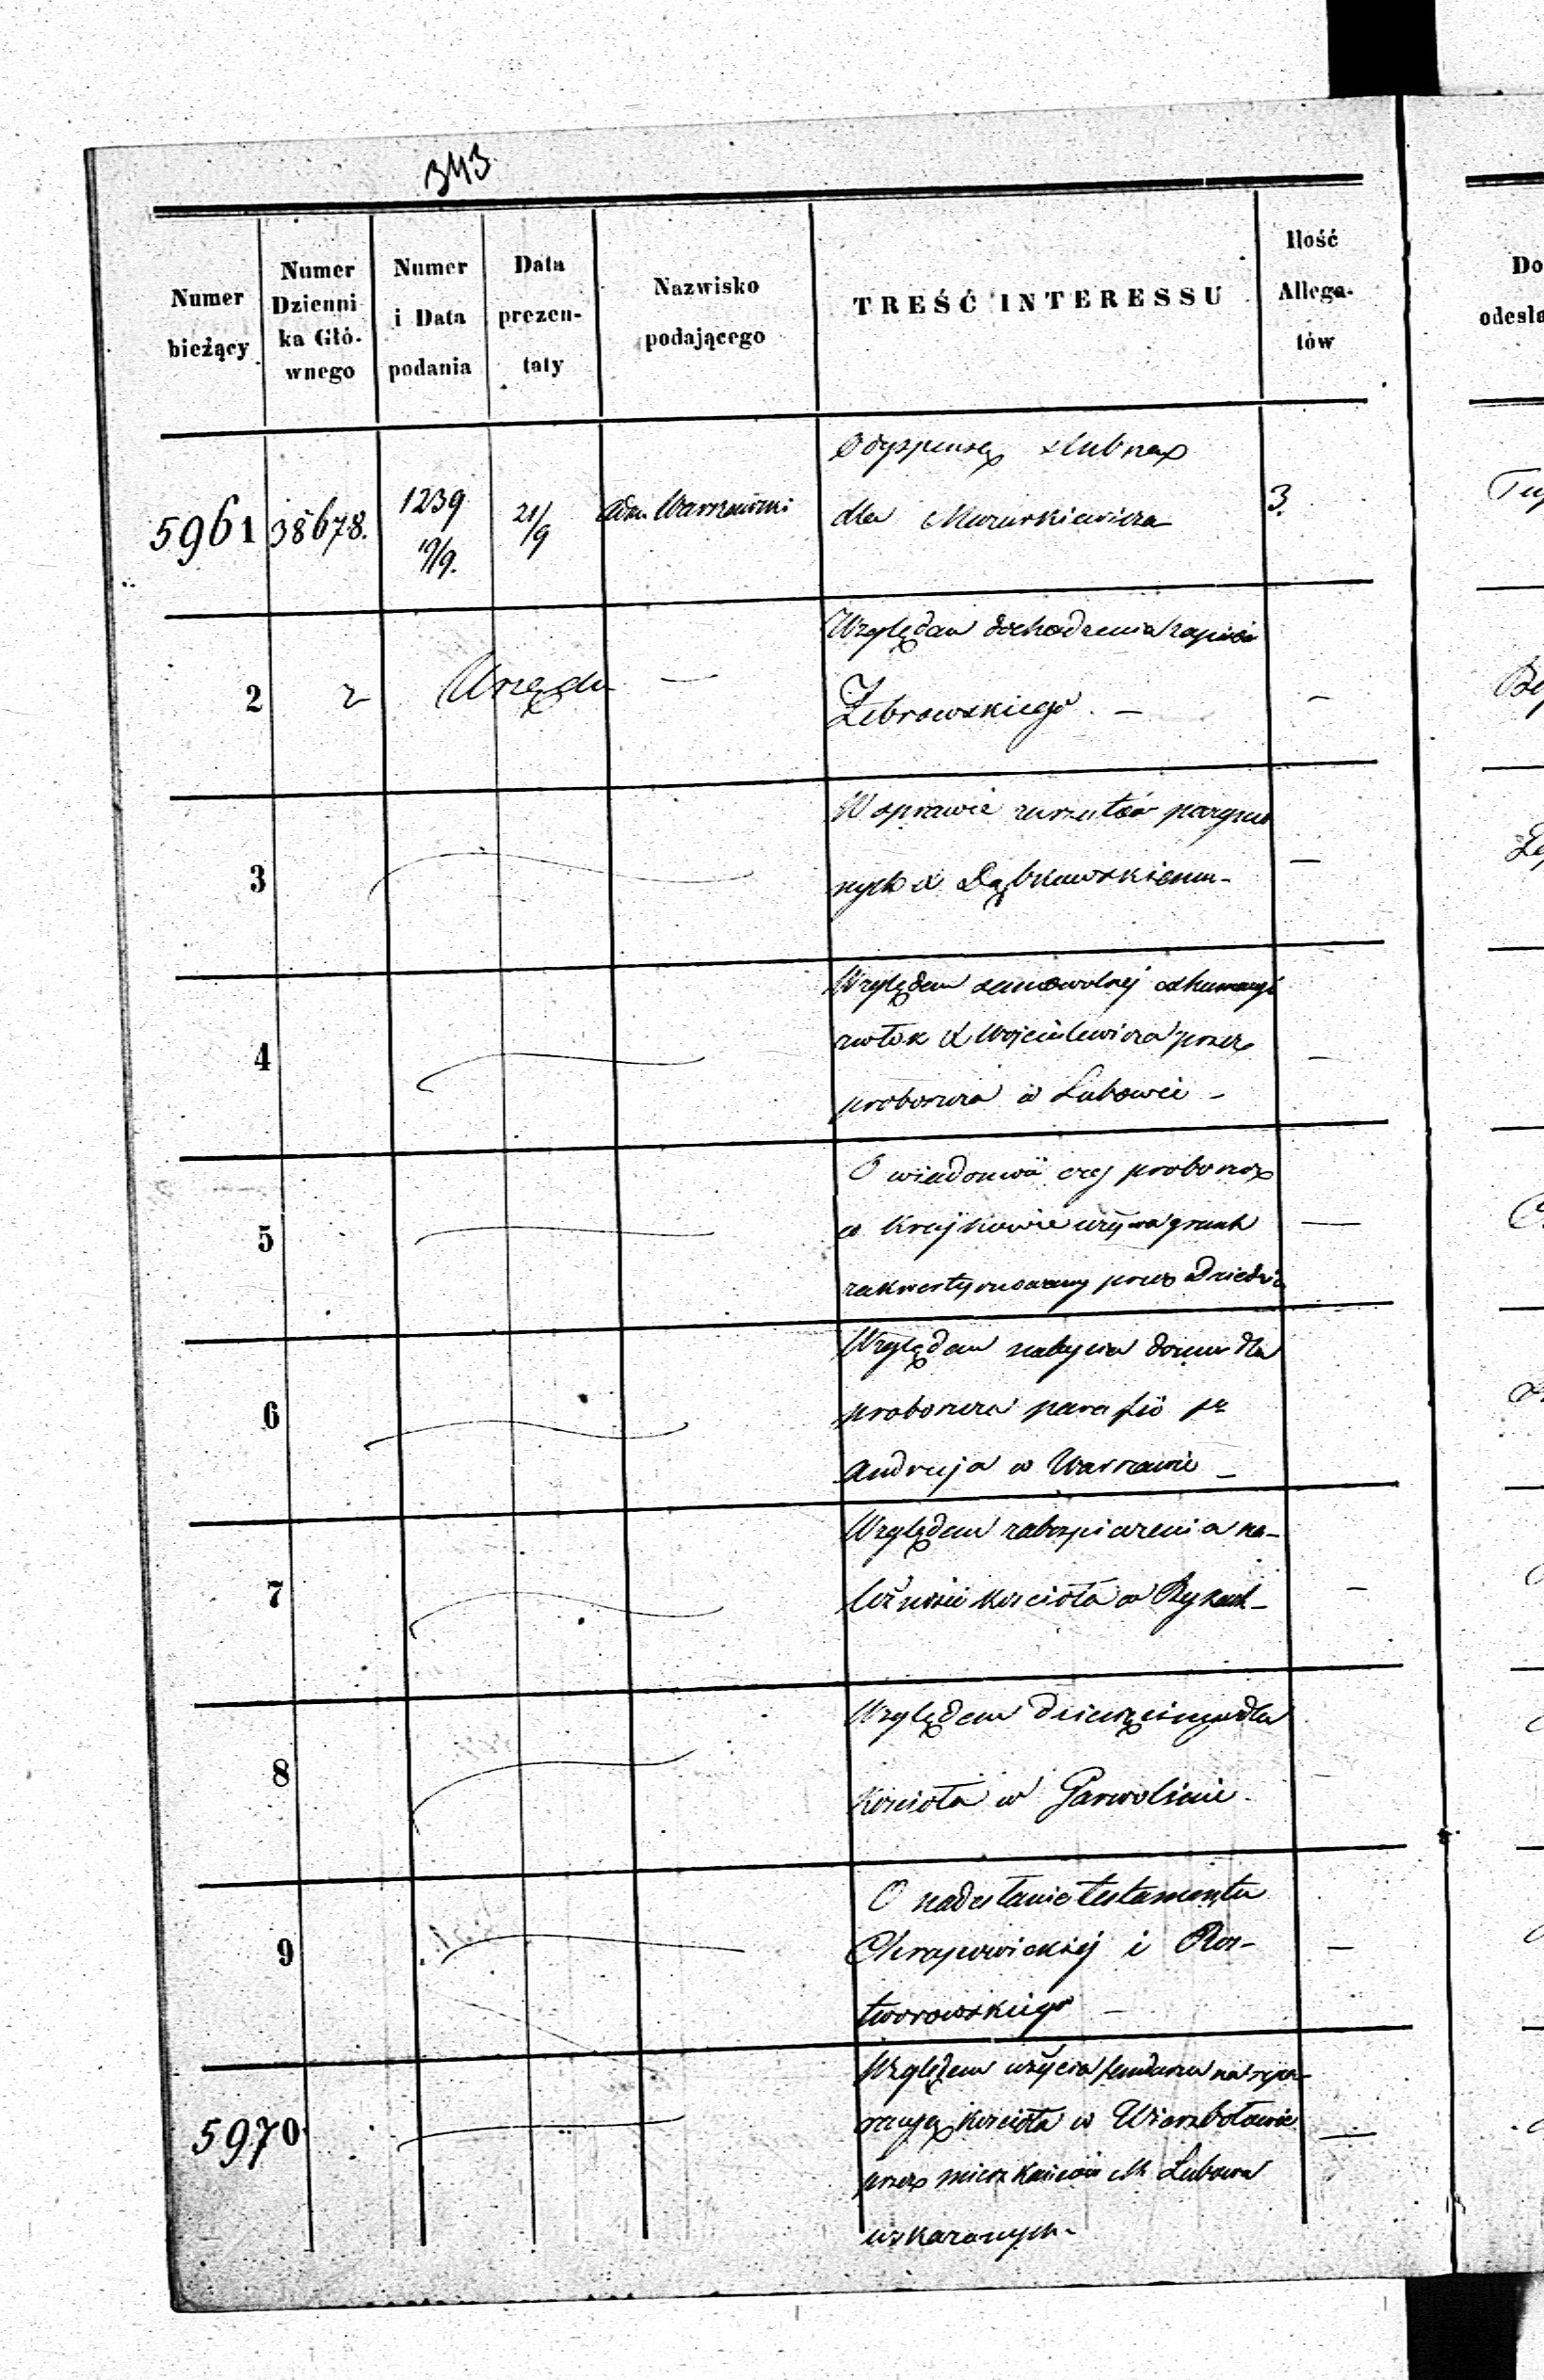 343
Numer bieżący
Numer Dzienni- ka Głó- wnego
Numer i Data podania
Data prezen- taty
Nazwisko podającego
TREŚĆ INTERESSU
Ilość Allega- tów
Do
odesła
5961 38678. 1239 19/9. 21/9 Adm. Warszawski
O dyspensę ślubną
dla Mazurkiewicza
3.
2 z Urzędu —
Względem dochodzenia zapisu
Żebrowskiego. —
3
W sprawie zarzutów
nych X Dąbkowskiemu —
4
Względem samowolnej exhumacyi
zwłok X Wojciulewicza przez
proboszcza w Lubowie —
5
O wiadomość czy proboszcz
w Krajkowie używa grunt
zakwestyonowany przez dziedzica
6
Względem nabycia domu dla
proboszcza parafii
Andrzeja w Warszawie —
7
Względem zabezpieczenia na-
leżności kościoła w
8
Względem dziesięciny dla
kościoła w Garwolinie.
9
O nadesłanie testamentu
Chrapowickiej i Roz-
tworowskiego —
5970
Względem użycia funduszu na repa-
racyą kościoła w Wierzbołowie
przez mieszkańców M. Lubowa
wskazanych.